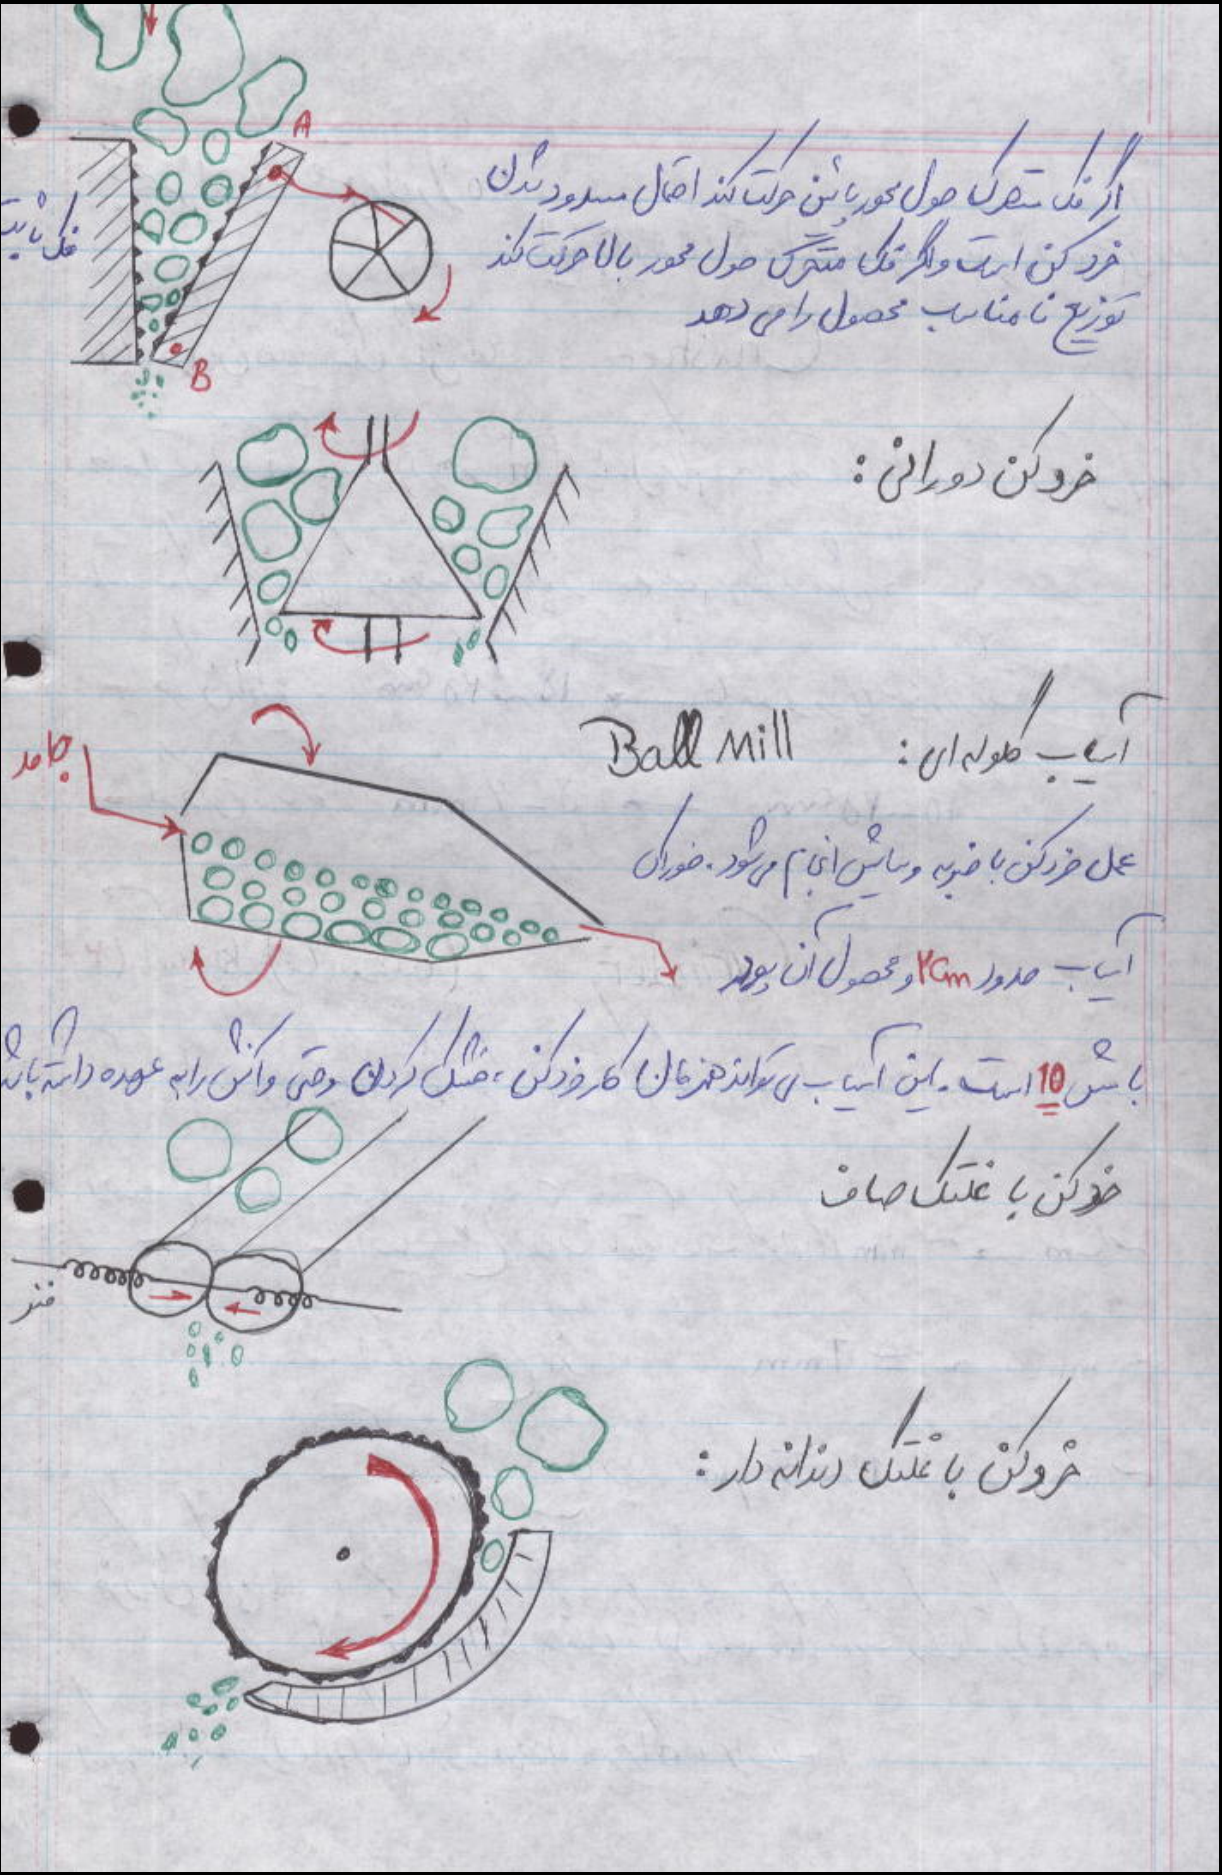 A
اگر فک متحرک حول محور پائین حرکت کند احتمال مسدود شدن
فک ثابت
خرد کن است و اگر فک متحرک حول محور بالا حرکت کند
توزیع نامناسب محصول را می دهد
B
خردکن دورانی :
آسیاب گلوله ای : Ball Mill
جامد
عمل خردکن با ضربه و سایش انجام می شود. خوراک
آسیاب حدود ۲cm و محصول آن پودر
با مش 10 است. این آسیاب می تواند همزمان کار خردکن ، خشک کردن وحتی واکنش را به عهده داشته باشد
خردکن با غلتک صاف
فنر
خردکن با غلتک دندانه دار :